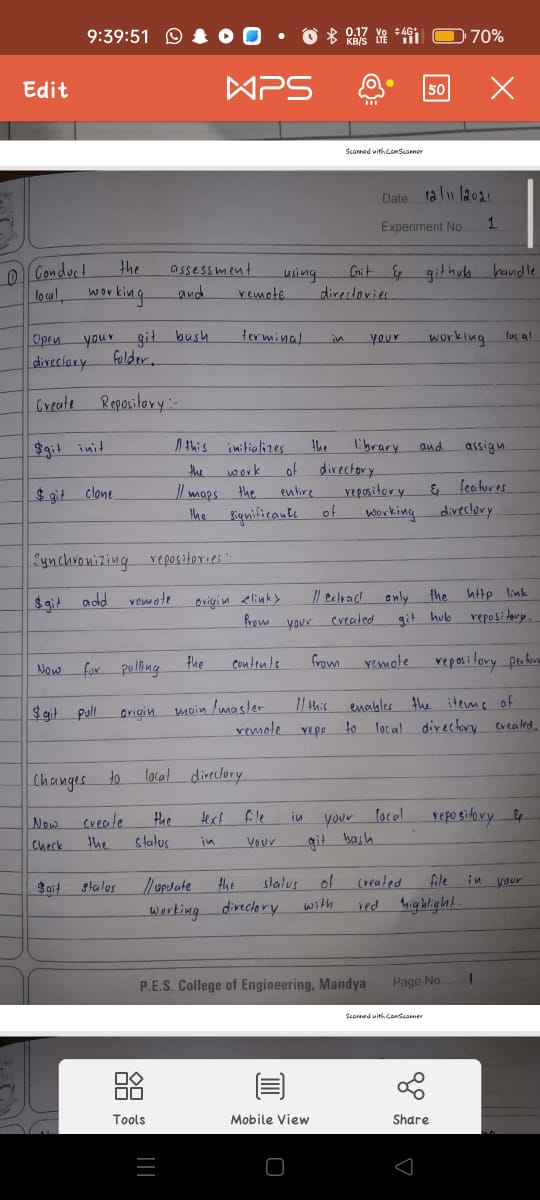 9:39:51 0.17 KB/S Vo LTE 4G+ 70%
Edit WPS 50
Scanned with CamScanner
Date 12/11/2021
Experiment No. 1
① Conduct the assessment using Git & github handle
local, working and remote directories.
Open your git bash terminal in your working local
directory folder.
Create Repository:-
$git init // this initializes the library and assign
the work of directory
$ git clone // maps the entire repository & features
the significante of working directory
Synchronizing repositories:-
$git add remote origin <link> // extract only the http link
from your created git hub repository.
Now for pulling the contents from remote repository perform
$git pull origin main/master // this enables the items of
remote repo to local directory created.
Changes to local directory
Now create the text file in your local repository &
check the status in your git bash
$git status // update the status of created file in your
working directory with red highlight.
P.E.S. College of Engineering, Mandya Page No... 1
Scanned with CamScanner
Tools Mobile View Share